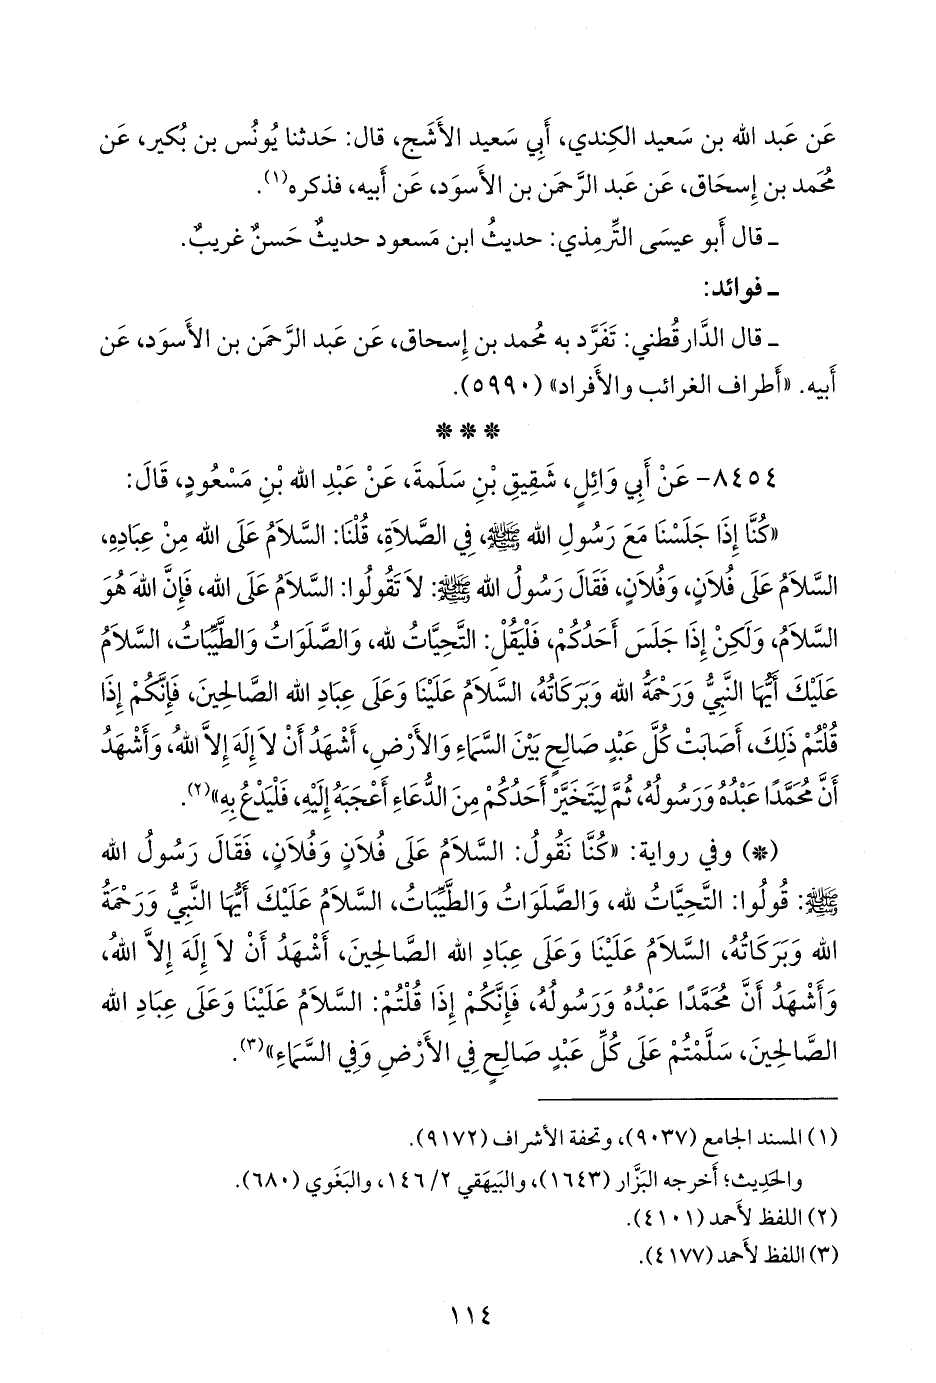 عَن عَبد الله بن سَعيد الكِندي، أَبي سَعيد الأَشَج، قال: حَدثنا يُونُس بن بُكير، عَن
مُحَمد بن إِسحَاق، عَن عَبد الرَّحمَن بن الأَسوَد، عَن أَبيه، فذكره(١).
ـ قال أَبو عيسَى التِّرمِذي: حديثُ ابن مَسعود حديثٌ حَسنٌ غريبٌ.
ـ فوائد:
ـ قال الدَّارقُطني: تَفَرَّد به مُحمد بن إِسحاق، عَن عَبد الرَّحمَن بن الأَسوَد، عَن
أَبيه. «أَطراف الغرائب والأَفراد» (٥٩٩٠).
* * *
٨٤٥٤- عَنْ أَبِي وَائِلٍ، شَقِيقِ بْنِ سَلَمةَ، عَنْ عَبْدِ الله بْنِ مَسْعُودٍ، قَالَ:
«كُنَّا إِذَا جَلَسْنَا مَعَ رَسُولِ الله ﷺ، فِي الصَّلاَةِ، قُلْنَا: السَّلاَمُ عَلَى الله مِنْ عِبَادِهِ،
السَّلاَمُ عَلَى فُلاَنٍ، وَفُلاَنٍ، فَقَالَ رَسُولُ الله ﷺ: لاَ تَقُولُوا: السَّلاَمُ عَلَى الله، فَإِنَّ اللهَ هُوَ
السَّلاَمُ، وَلَكِنْ إِذَا جَلَسَ أَحَدُكُمْ، فَلْيَقُلْ: التَّحِيَّاتُ لله، وَالصَّلَوَاتُ وَالطَّيِّبَاتُ، السَّلاَمُ
عَلَيْكَ أَيُّهَا النَّبِيُّ وَرَحْمَةُ الله وَبَرَكَاتُهُ، السَّلاَمُ عَلَيْنَا وَعَلَى عِبَادِ الله الصَّالِحِينَ، فَإِنَّكُمْ إِذَا
قُلْتُمْ ذَلِكَ، أَصَابَتْ كُلَّ عَبْدٍ صَالِحٍ بَيْنَ السَّمَاءِ وَالأَرْضِ، أَشْهَدُ أَنْ لاَ إِلَهَ إِلاَّ اللهُ، وَأَشْهَدُ
أَنَّ مُحَمَّدًا عَبْدُهُ وَرَسُولُهُ، ثُمَّ لِيَتَخَيَّرْ أَحَدُكُمْ مِنَ الدُّعَاءِ أَعْجَبَهُ إِلَيْهِ، فَلْيَدْعُ بِهِ»(٢).
(*) وفي رواية: «كُنَّا نَقُولُ: السَّلاَمُ عَلَى فُلاَنٍ وَفُلاَنٍ، فَقَالَ رَسُولُ الله
ﷺ: قُولُوا: التَّحِيَّاتُ لله، وَالصَّلَوَاتُ وَالطَّيِّبَاتُ، السَّلاَمُ عَلَيْكَ أَيُّهَا النَّبِيُّ وَرَحْمَةُ
الله وَبَرَكَاتُهُ، السَّلاَمُ عَلَيْنَا وَعَلَى عِبَادِ الله الصَّالِحِينَ، أَشْهَدُ أَنْ لاَ إِلَهَ إِلاَّ اللهُ،
وَأَشْهَدُ أَنَّ مُحَمَّدًا عَبْدُهُ وَرَسُولُهُ، فَإِنَّكُمْ إِذَا قُلْتُمْ: السَّلاَمُ عَلَيْنَا وَعَلَى عِبَادِ الله
الصَّالِحِينَ، سَلَّمْتُمْ عَلَى كُلِّ عَبْدٍ صَالِحٍ فِي الأَرْضِ وَفِي السَّمَاءِ»(٣).
(١) المسند الجامع (٩٠٣٧)، وتحفة الأشراف (٩١٧٢).
والحَدِيث؛ أَخرجه البَزَّار (١٦٤٣)، والبَيهَقي ٢/ ١٤٦، والبَغَوي (٦٨٠).
(٢) اللفظ لأَحمد (٤١٠١).
(٣) اللفظ لأَحمد (٤١٧٧).
١١٤